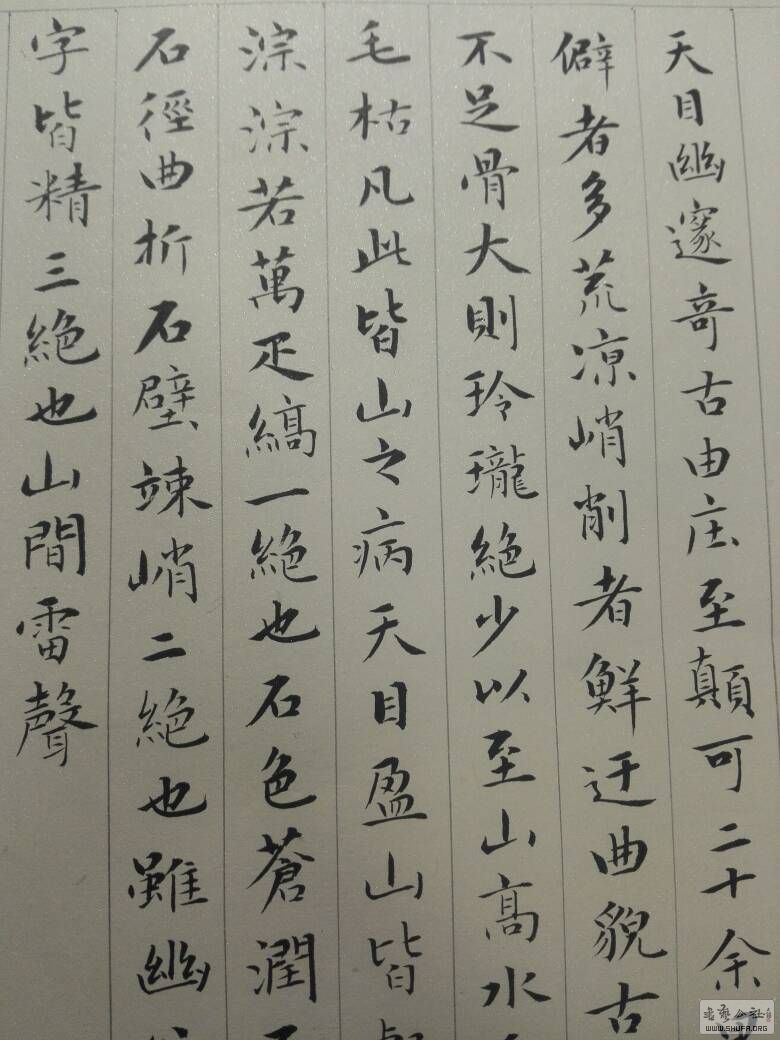 天目幽邃竒古由庄至顛可二十余
僻者多荒凉峭削者鮮迂曲貌古
不足骨大則玲瓏絶少以至山高水
毛枯凡此皆山之病天目盈山皆
淙淙若萬疋縞一絶也石色蒼潤
石徑曲折石壁竦峭二絶也雖幽
字皆精三絶也山間雷聲
WWW.SHUFA.ORG